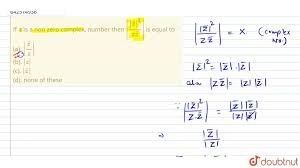 If z is a non zero complex, number then | |z̄|² / z z̄ | is equal to
(a). | z̄ / z |
(b). |z|
(c). |z̄|
(d). none of these
| |z̄|² / z z̄ | = x. (complex No.)
|z̄|² = |z̄| · |z̄|
also |z z̄| = |z| · |z̄|
∵ | |z̄|² / z z̄ | = |z̄| |z̄| / |z| |z̄|
⇒ |z̄| / |z|
doubtnut